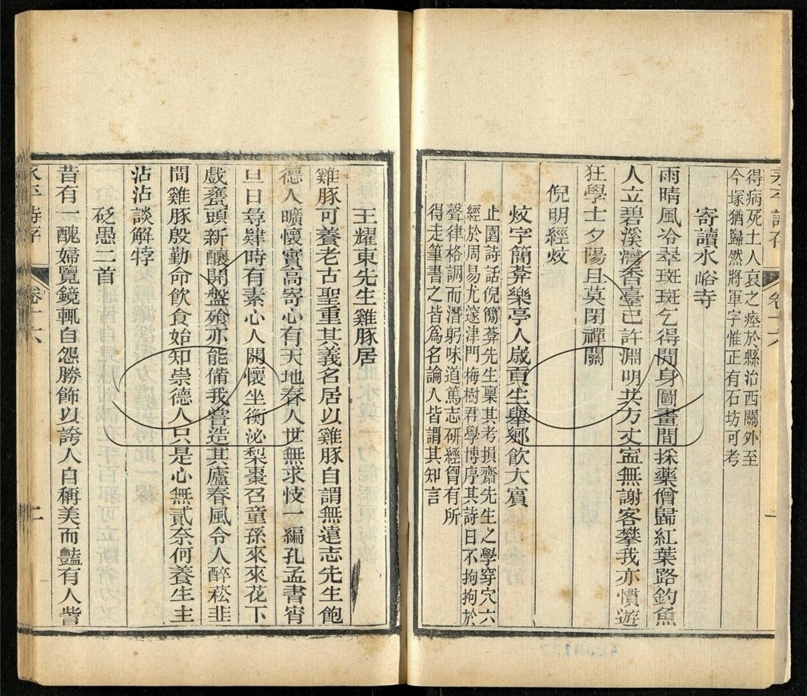 永平詩存　卷十六
得病死土人哀之瘞於縣治西關外至
今塚猶歸然將軍字惟正有石坊可考
寄讀水峪寺
雨晴風冷翠斑斑乞得閒身圖畫間採藥僧歸紅葉路釣魚
人立碧溪灣香臺已許淵明共方丈寧無謝客攀我亦慣遊
狂學士夕陽且莫閉禪關
倪明經炆
炆字簡莾樂亭人歲貢生舉鄉飲大賓
止園詩話倪簡莾先生稟其考損齋先生之學穿穴六
經於周易尤邃津門梅樹君學博序其詩曰不拘拘於
聲律格調而潛躬味道篤志研經曾有所
得走筆書之皆為名論人皆謂其知言
王耀東先生雞豚居
雞豚可養老古聖重其義名居以雞豚自謂無遠志先生飽
德人曠懷實高寄心有天地春人世無求忮一編孔孟書宵
旦日尋肄時有素心人闕懷坐衡泌梨棗召童孫來來花下
戲甕頭新釀開盤飧亦能備我嘗造其廬春風令人醉菘韭
間雞豚殷勤命飲食始知崇德人只是心無貳奈何養生主
沾沾談解牸
砭愚二首
昔有一醜婦覽鏡輒自怨勝飾以誇人自稱美而豔有人訾
永平詩存　卷十六